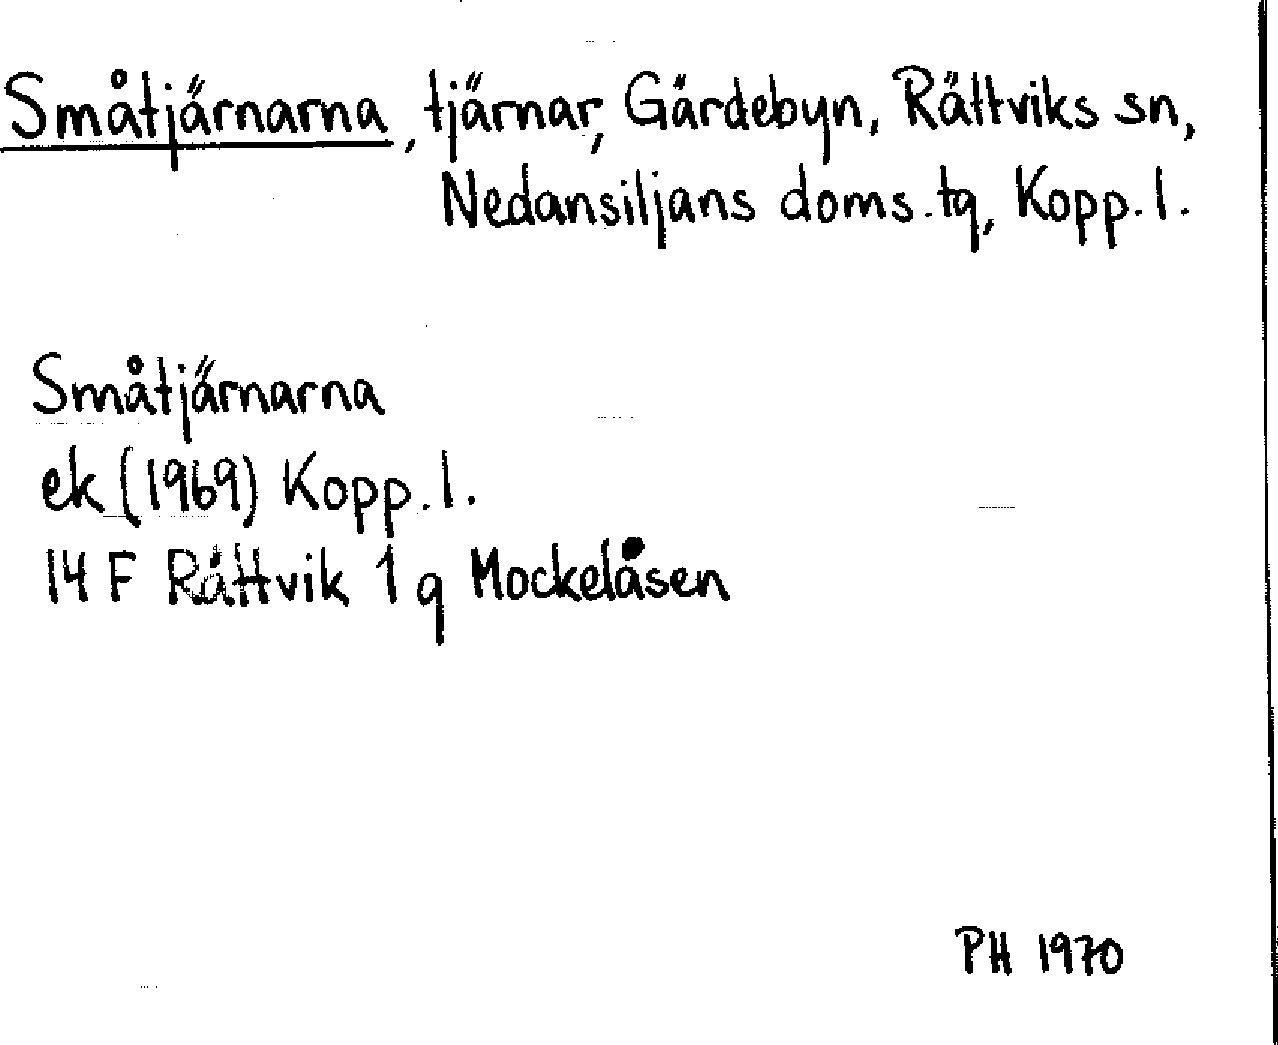 Småtjärnarna, tjärnar, Gärdebyn, Rättviks sn,
Nedansiljans doms.tg, Kopp. l.
Småtjärnarna
ek (1969) Kopp. l.
14 F Rättvik 1 g Mockelåsen
PH 1970